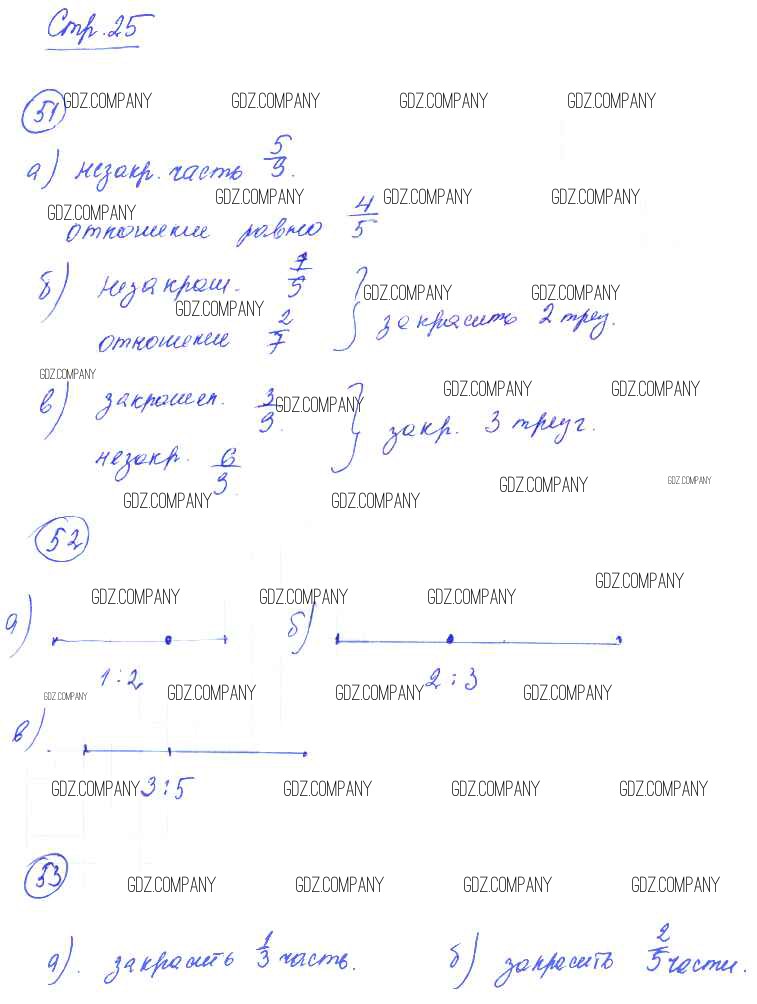 Стр. 25
51 GDZ.COMPANY GDZ.COMPANY GDZ.COMPANY GDZ.COMPANY
а) незакр. часть 5/9.
GDZ.COMPANY GDZ.COMPANY GDZ.COMPANY GDZ.COMPANY
отношение равно 4/5
б) незакраш. 7/5 GDZ.COMPANY GDZ.COMPANY
GDZ.COMPANY
отношение 2/7 } закрасить 2 треу.
GDZ.COMPANY
в) закрашен. 3/9. GDZ.COMPANY GDZ.COMPANY GDZ.COMPANY
незакр. 6/9 } закр. 3 треуг.
GDZ.COMPANY GDZ.COMPANY GDZ.COMPANY GDZ.COMPANY
52
GDZ.COMPANY GDZ.COMPANY GDZ.COMPANY GDZ.COMPANY
а) б)
1:2 2:3
GDZ.COMPANY GDZ.COMPANY GDZ.COMPANY GDZ.COMPANY
в)
GDZ.COMPANY 3:5 GDZ.COMPANY GDZ.COMPANY GDZ.COMPANY
53 GDZ.COMPANY GDZ.COMPANY GDZ.COMPANY GDZ.COMPANY
а). закрасить 1/3 часть. б) закрасить 2/5 части.